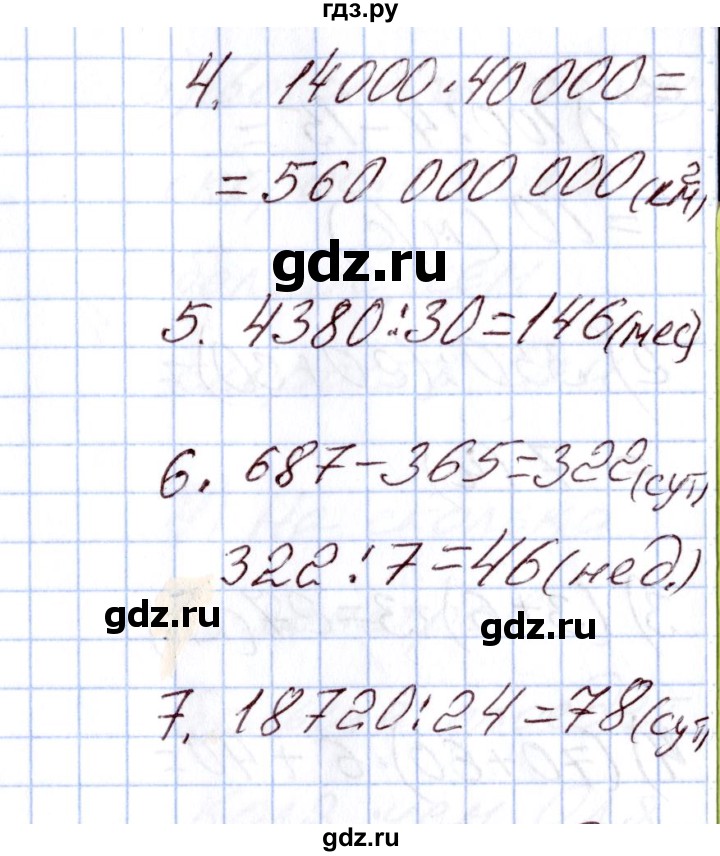 гдз.ру
4. 14000·40000=
=560 000 000 (км²)
gdz.ru
5. 4380:30=146(мес)
6. 687-365=322(сут)
322:7=46(нед.)
gdz.ru
gdz.ru
7. 18720:24=78(сут)
gdz.ru